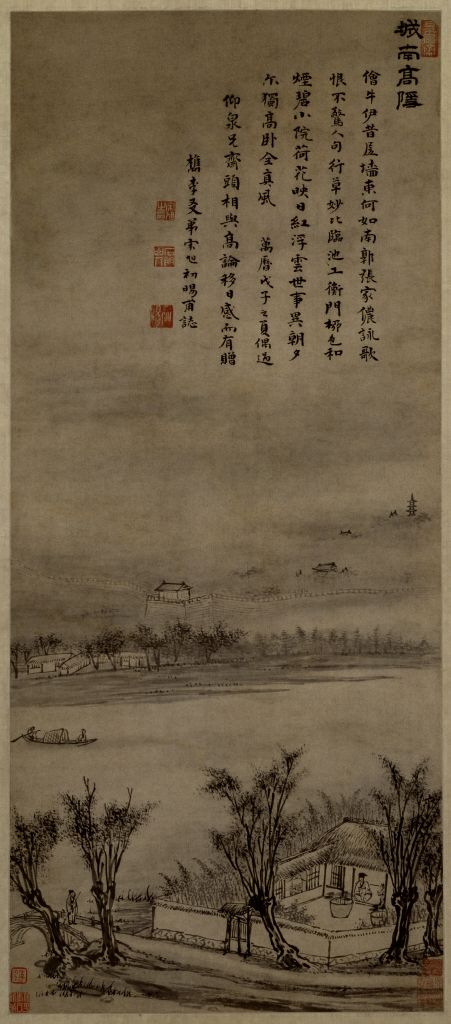 城南高隱
儈牛伊昔居墻東何如南郭張家儂詠歌
恨不驚人句行草妙比臨池工衡門柳色和
煙碧小院荷花映日紅浮雲世事異朝夕
尒獨高卧全真風 萬曆戊子之夏偶過
仰泉兄齋頭相與高論移日感而有贈
檇李友弟宋旭初暘甫誌